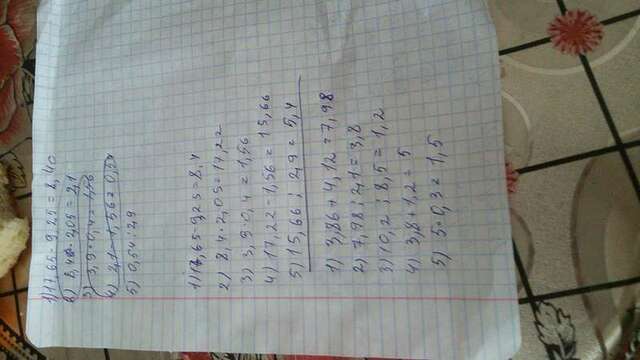 1) 17,65 - 9,25 = 8,40
2) 8,40 · 2,05 = 2,1
3) 3,9 · 0,4 = 1,56
4) 2,1 - 1,56 = 0,54
5) 0,54 : 2,9
1) 17,65 - 9,25 = 8,4
2) 8,4 · 2,05 = 17,22
3) 3,9 · 0,4 = 1,56
4) 17,22 - 1,56 = 15,66
5) 15,66 : 2,9 = 5,4
1) 3,86 + 4,12 = 7,98
2) 7,98 : 2,1 = 3,8
3) 10,2 : 8,5 = 1,2
4) 3,8 + 1,2 = 5
5) 5 · 0,3 = 1,5